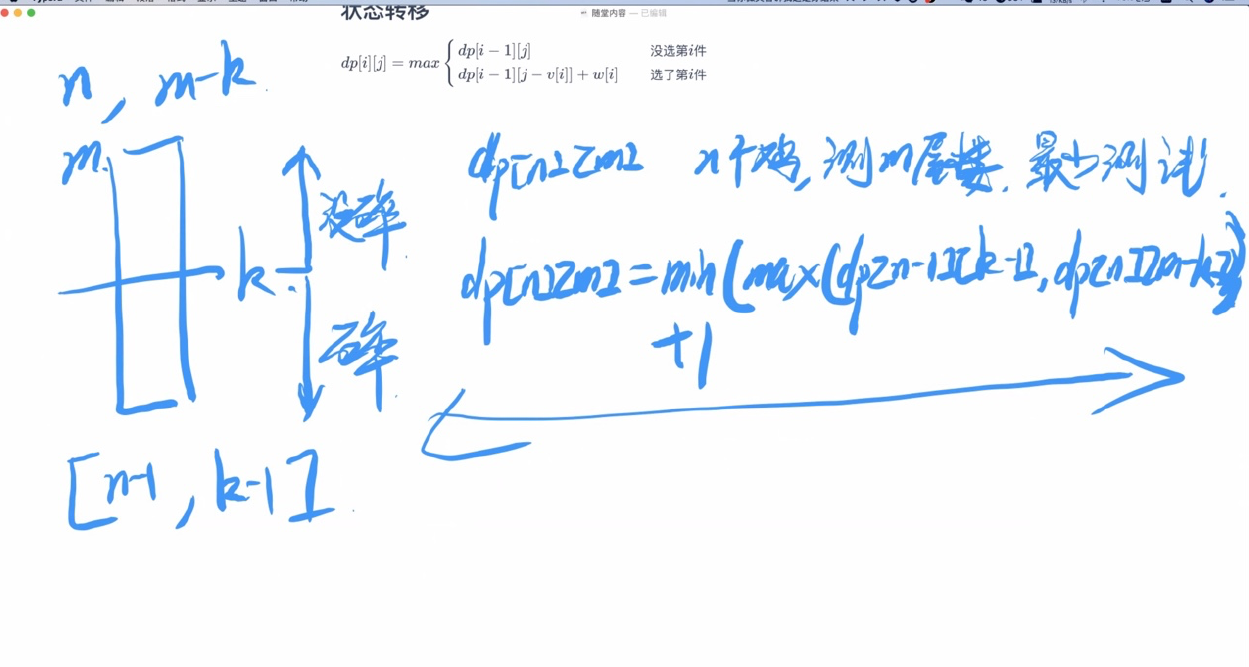 随堂内容 — 已编辑
状态转移
dp[i][j] = max { dp[i − 1][j] 没选第i件
dp[i − 1][j − v[i]] + w[i] 选了第i件
n , m-k
m
没碎
k
碎
[n-1 , k-1]
dp[n][m] n个鸡, 测m层楼. 最少测试.
dp[n][m] = min(max(dp[n-1][k-1], dp[n][m-k]))
+1